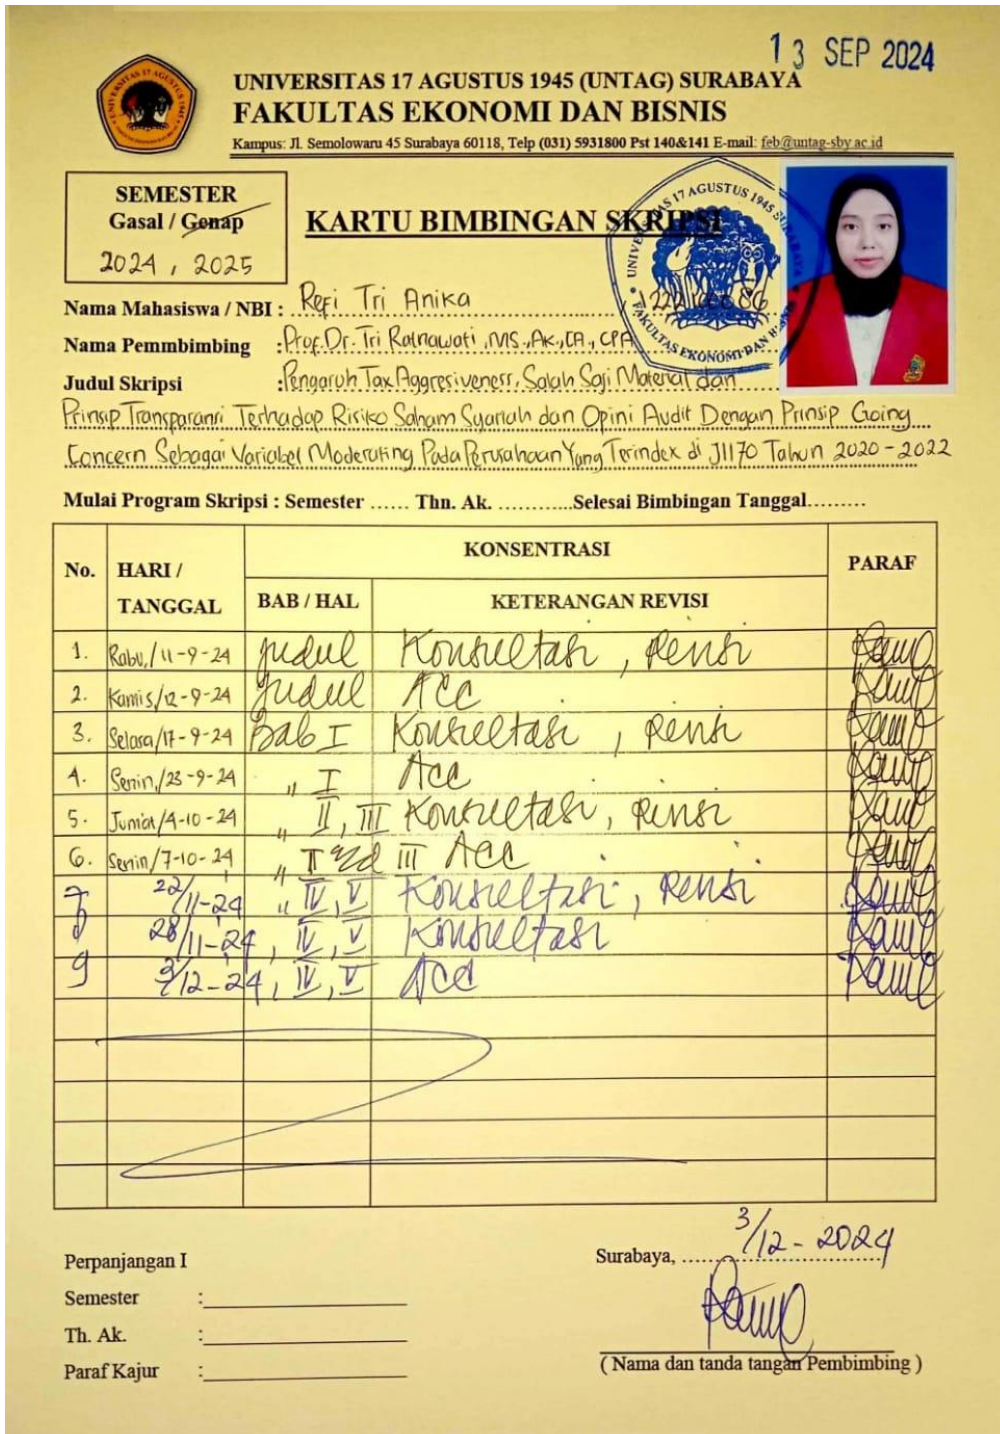 13 SEP 2024
UNIVERSITAS 17 AGUSTUS 1945 (UNTAG) SURABAYA
FAKULTAS EKONOMI DAN BISNIS
Kampus: Jl. Semolowaru 45 Surabaya 60118, Telp (031) 5931800 Pst 140&141 E-mail: feb@untag-sby.ac.id
SEMESTER
Gasal / Genap
2024, 2025
KARTU BIMBINGAN SKRIPSI
UNIVERSITAS 17 AGUSTUS 1945 SURABAYA
FAKULTAS EKONOMI DAN BISNIS
Nama Mahasiswa / NBI : Refi Tri Anika
Nama Pemmbimbing : Prof. Dr. Tri Ratnawati, MS., Ak., CA., CPA
Judul Skripsi : Pengaruh Tax Aggresiveness, Salah Saji Material dan
Prinsip Transparansi Terhadap Risiko Saham Syariah dan Opini Audit Dengan Prinsip Going
Concern Sebagai Variabel Moderating Pada Perusahaan Yang Terindex di JII70 Tahun 2020 - 2022
Mulai Program Skripsi : Semester ...... Thn. Ak. ............Selesai Bimbingan Tanggal.........
No. HARI / TANGGAL KONSENTRASI PARAF
BAB / HAL KETERANGAN REVISI
1. Rabu,/11-9-24 Judul Konsultasi, Revisi
2. Kamis/12-9-24 Judul Acc
3. Selasa/17-9-24 Bab I Konsultasi, Revisi
4. Senin,/23-9-24 " I Acc
5. Jumat/4-10-24 " II, III Konsultasi, Revisi
6. Senin/7-10-24 " I s/d III Acc
7 22/11-24 " IV, V Konsultasi, Revisi
8 28/11-24, IV, V Konsultasi
9 3/12-24, IV, V Acc
Perpanjangan I
Semester :
Th. Ak. :
Paraf Kajur :
Surabaya, 3/12 - 2024
( Nama dan tanda tangan Pembimbing )